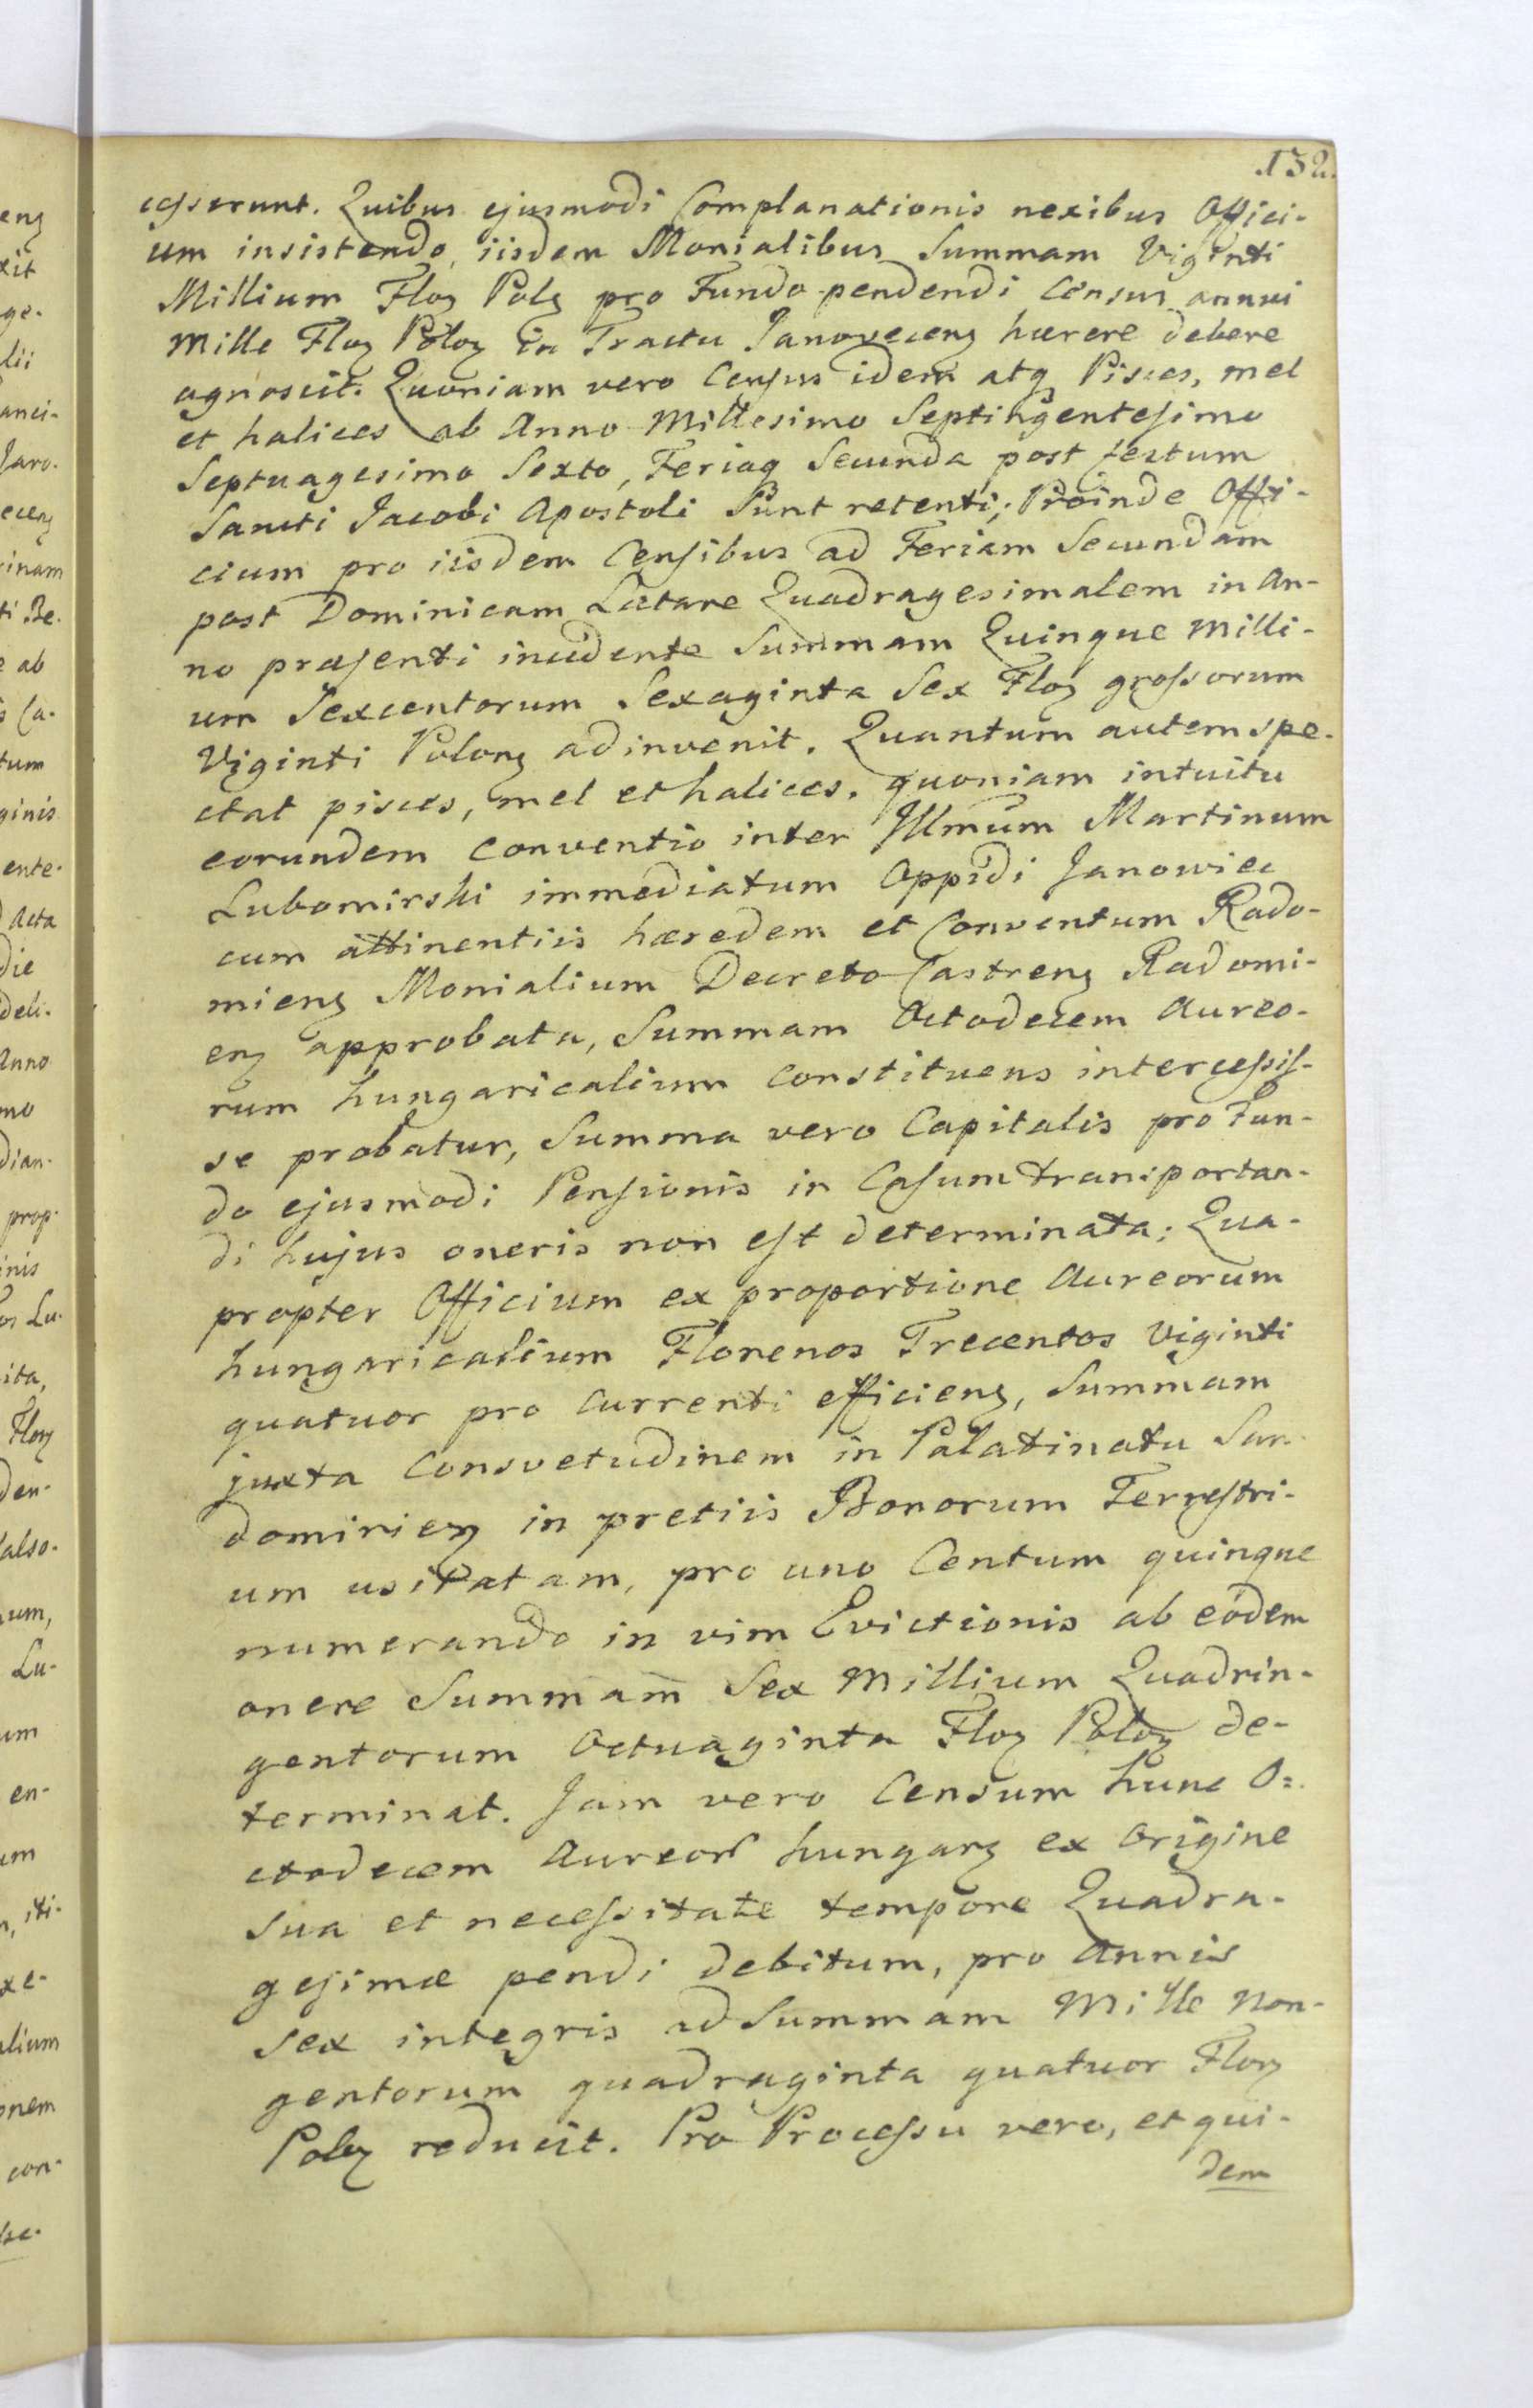 132.
cesserunt. Quibus ejusmodi Complanationis nexibus Offici-
um insistendo, iisdem Monialibus Summam Viginti
Millium Floꝝ Polꝝ pro Fundo pendendi Census annui
Mille Floꝝ Poloꝝ in Tractu Janoveceng hærere debere
agnoscit. Quoniam vero Census idem atqꝫ Pisces, mel
et halices ab Anno Millesimo Septingentesimo
Septuagesimo Sexto, Feriaqꝫ Secunda post festum
Sancti Jacobi Apostoli Sunt retenti; Proinde Offi-
cium pro iisdem Censibus ad Feriam Secundam
post Dominicam Lætare Quadragesimalem in An-
no præsenti incidente Summam Quinque Milli-
um Sexcentorum Sexaginta Sex Floꝝ grossorum
Viginti Polonꝝ adinvenit. Quantum autem spe-
ctat pisces, mel et halices. quoniam intuitu
eorundem conventio inter Illmum Martinum
Lubomirski immediatum Oppidi Janowiec
cum attinentiis hæredem et Conventum Rado-
mieng Monialium Decreto Castreng Radomi-
eng approbata, Summam Octodecem Aureo-
rum hungaricalium constituens intercessis-
se probatur, Summa vero Capitalis pro Fun-
do ejusmodi Pensionis in Casum transportan-
di hujus oneris non est determinata; Qua-
propter Officium ex proportione Aureorum
hungaricalium Florenos Trecentos Viginti
quatuor pro currenti efficieng, Summam
juxta Consvetudinem in Palatinatu San-
domirieng in pretiis Bonorum Terrestri-
um usitatam, pro uno Centum quinque
numerando in vim Evictionis ab eodem
onere Summam Sex Millium Quadrin-
gentorum Octuaginta Floꝝ Poloꝝ de-
terminat. Jam vero Censum hunc O=
ctodecem Aureorꝝ hungarꝝ ex Origine
sua et necessitate tempore Quadra-
gesimæ pendi debitum, pro Annis
sex integris ad Summam Mille Non-
gentorum quadraginta quatuor Floꝝ
Polꝝ reducit. Pro Processu vero, et qui-
dem